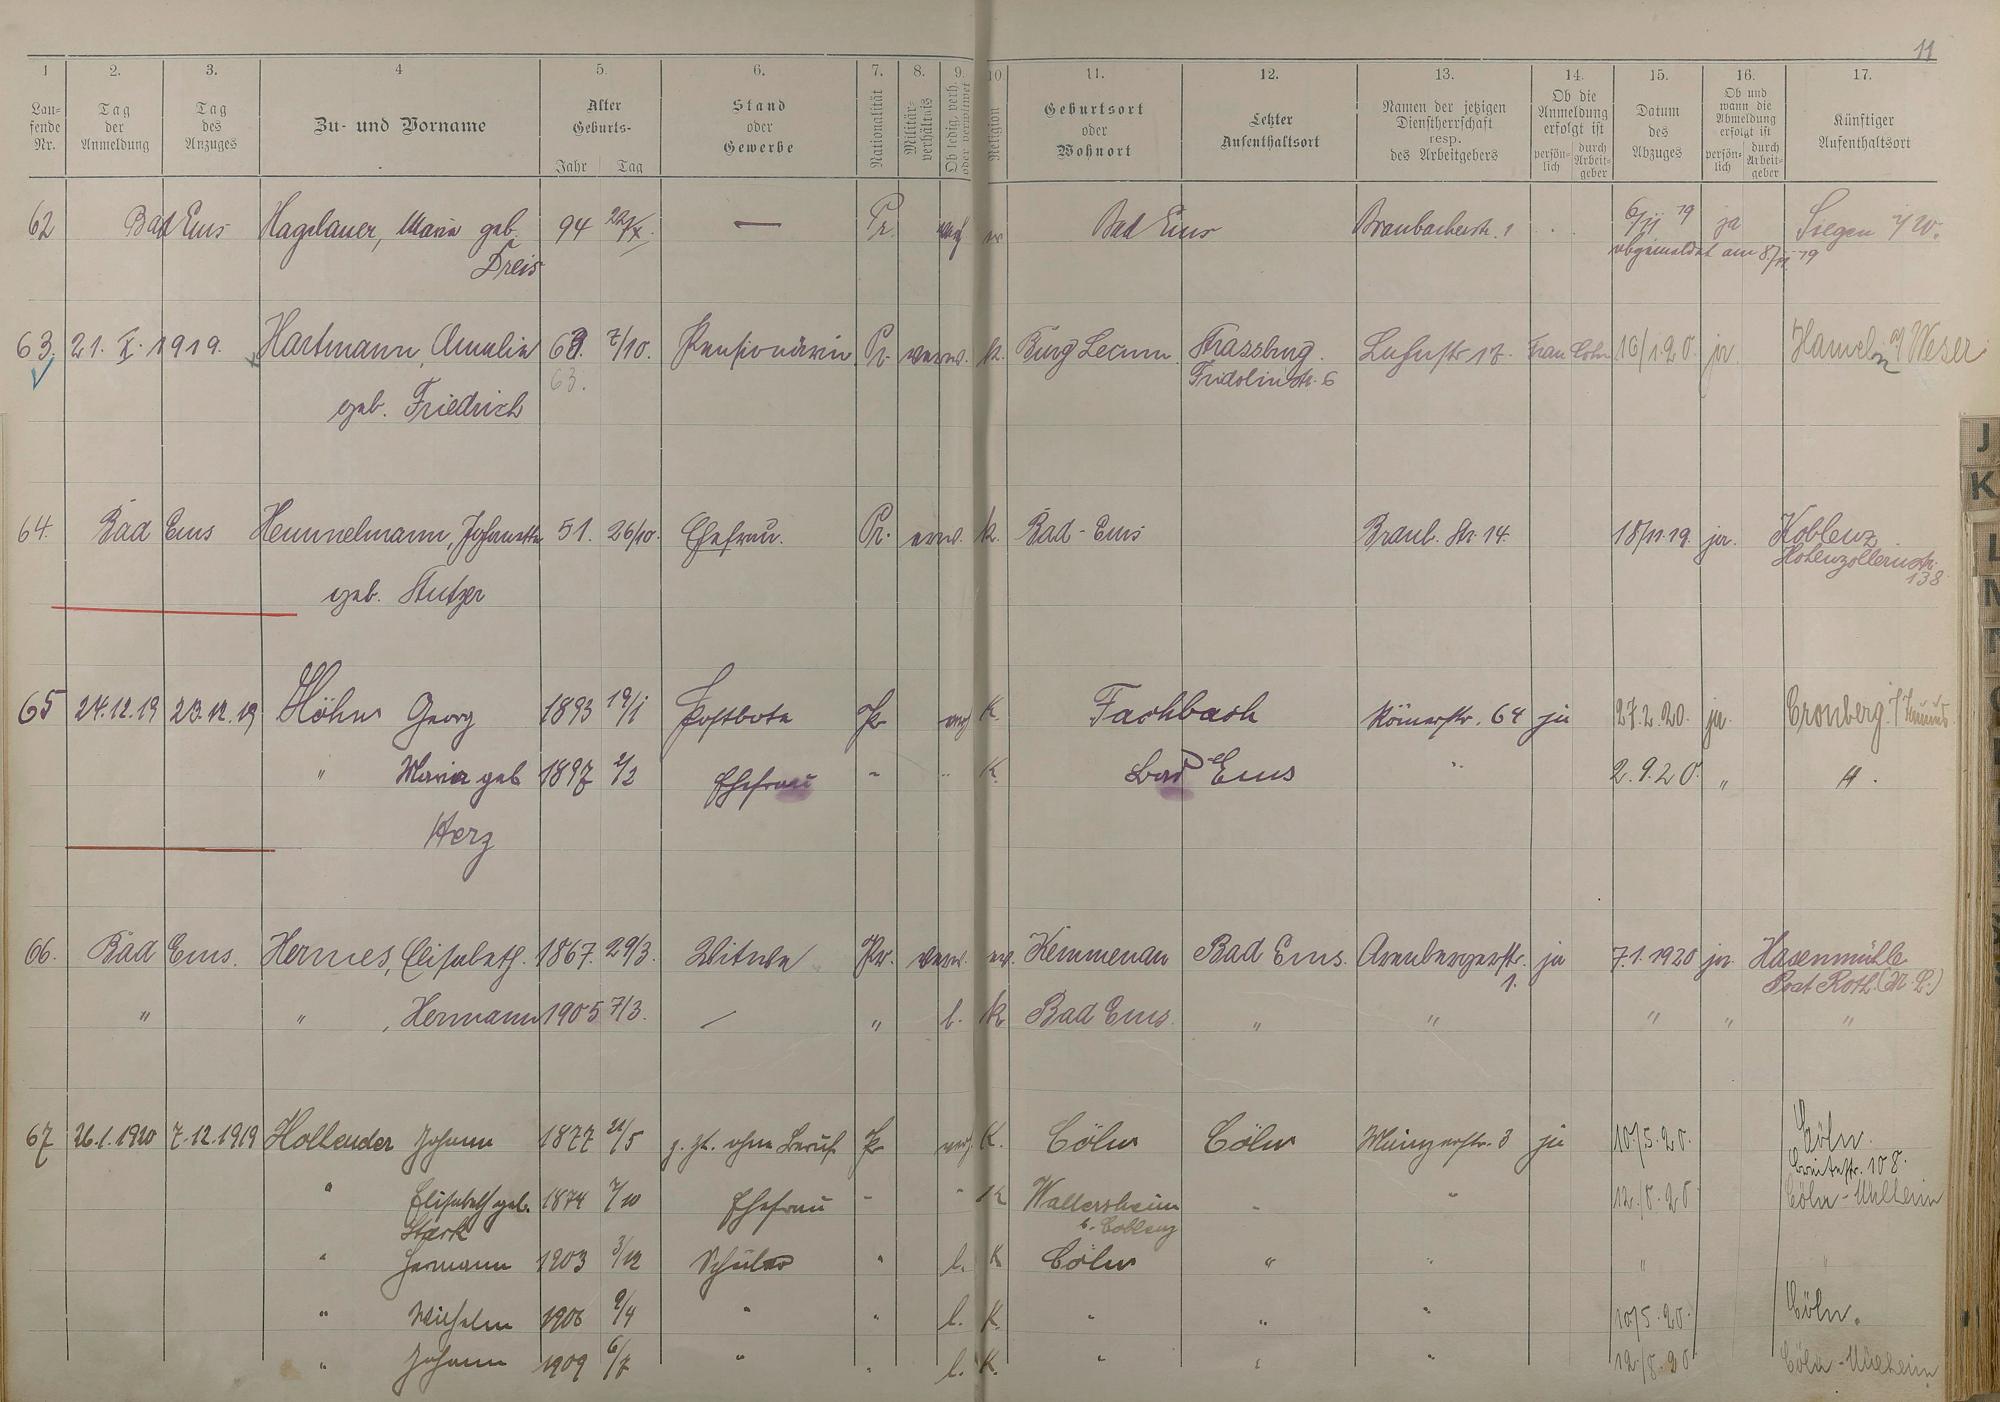 11
1 2. 3. 4 5. 6. 7. 8. 9. 10. 11. 12. 13. 14. 15. 16. 17.
Lau-
fende
Nr.
Tag
der
Anmeldung
Tag
des
Anzuges
Zu- und Vorname
Alter
Geburts-
Jahr Tag
Stand
oder
Gewerbe
Nationalität
Militär-
verhältnis
Ob ledig, verh.
oder verwitwet
Religion
Geburtsort
oder
Wohnort
Letzter
Aufenthaltsort
Namen der jetzigen
Dienstherrschaft
resp.
des Arbeitgebers
Ob die
Anmeldung
erfolgt ist
persön-
lich
durch
Arbeit-
geber
Datum
des
Abzuges
Ob und
wann die
Abmeldung
erfolgt ist
persön-
lich
durch
Arbeit-
geber
Künftiger
Aufenthaltsort
62 Bad Ems Hagelauer, Maria geb. 94 22/X. — Pr. ev Bad Ems Braubacherstr. 1 6/11 19 ja Siegen i/W.
Dreis abgemeldet am 8/11 19
63. 21. X. 1919. Hartmann, Amalie 63. 7/10. Pensionärin Pr. verw. k. Strassburg. 16/1.20. ja. Hameln a/Weser
63. Fridolinstr. 6
geb. Friedrich
64. Bad Ems Hemmelmann, 51. 26/10. Ehefrau. Pr. k. Bad-Ems Braub. Str. 14. 18/11.19. ja. Koblenz
Hohenzollernstr.
138
geb. Stutzer
65 24.12.19 23.12.19 Höhn Georg 1893 19/1 Postbote Pr K. Fachbach Römerstr. 64 ja 27.2.20. ja. Cronberg i/Taunus
" Maria geb 1897 2/2 Ehefrau " " K. Bad Ems " 2.9.20. "
Herz
66. Bad Ems. Hermes, Elisabeth. 1867. 29/3. Witwe Pr. verw. ev. Kemmenau Bad Ems. Arenbergerstr. ja 7.1.1920 ja Hasenmühle
1. Post Roth.
" " , Hermann 1905 7/3. — " l. k Bad Ems. " " " " "
67 26.1.1920 7.12.1919 Hollender Johann 1877 21/5 z. Zt. ohne Beruf Pr K. Cöln Cöln Mainzerstr. 3 ja 10/5.20. Cöln.
Breitestr. 108.
" Elisabeth geb. 1874 7/10 Ehefrau " " K Wallersheim " " 12./8.20 Cöln-Mülheim
Stark b. Coblenz
" Hermann 1903 3/12 Schüler " l. K Cöln " " " "
" Wilhelm 1906 9/4 " " l. K. " " " 10/5.20. Cöln.
" Johann 1909 6/7 " " l. K. " " " 12./8.20 Cöln-Mülheim
J
K
L
M